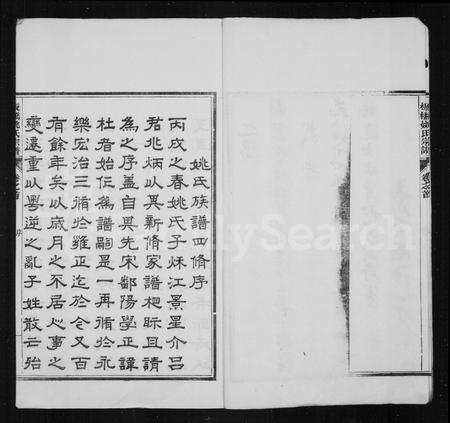 姚氏族譜四脩序
丙戌之春姚氏子秌江景星介吕
君兆炳以其新脩家譜梔眎且請
為之序蓋自其先宋鄱陽學正諱
杜者始作為譜嗣是一再脩扵永
樂宏治三脩扵雍正迄於今又百
有餘年矣以歲月之不居人事之
變遷重以粤逆之亂子姓散亡殆
卷之首
序
姚氏宗譜
卷之首
FamilySearch